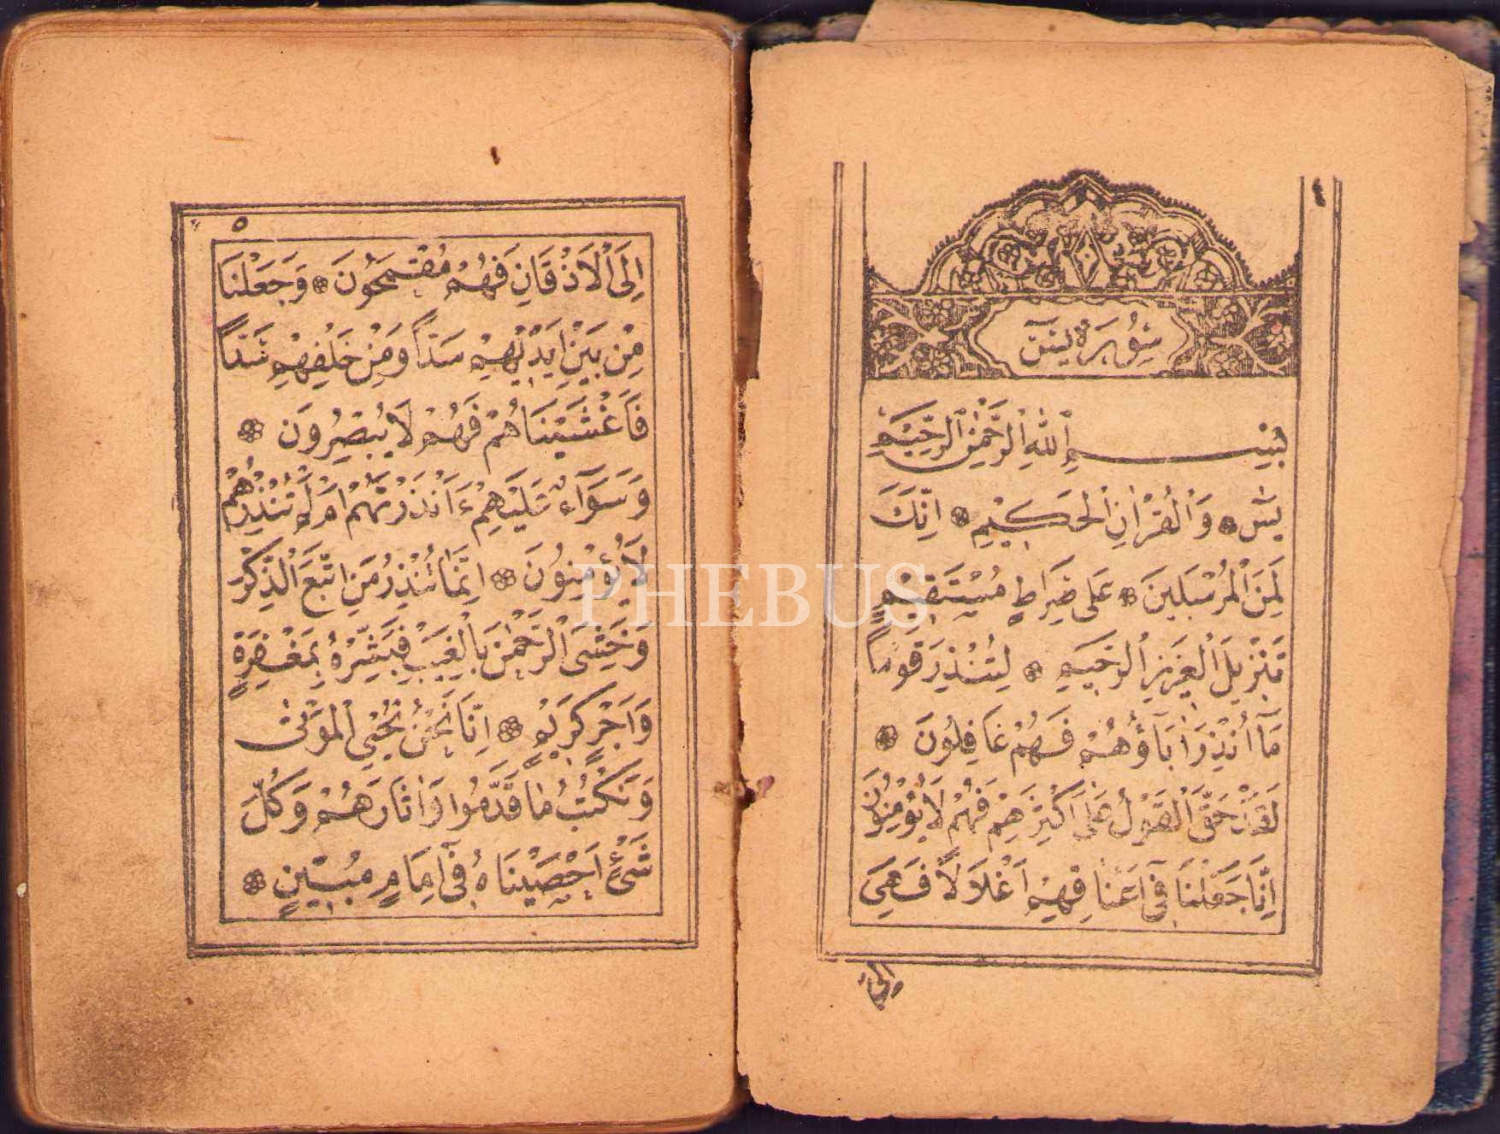 سُورَةُ يٰسٓ
بِسْمِ اللّٰهِ الرَّحْمٰنِ الرَّحِيمِ
يٰسٓ وَالْقُرْاٰنِ الْحَكِيْمِ اِنَّكَ
لَمِنَ الْمُرْسَلِينَ عَلٰى صِرَاطٍ مُسْتَقِيْمٍ
تَنْزِيلَ الْعَزِيزِ الرَّحِيمِ لِتُنْذِرَ قَوْمًا
مَٓا اُنْذِرَ اٰبَٓاؤُهُمْ فَهُمْ غَافِلُونَ
لَقَدْ حَقَّ الْقَوْلُ عَلٰى اَكْثَرِهِمْ فَهُمْ لَا يُؤْمِنُونَ
اِنَّا جَعَلْنَا فِٓى اَعْنَاقِهِمْ اَغْلَالًا فَهِىَ
اِلَى
٥
اِلَى الْاَذْقَانِ فَهُمْ مُقْمَحُونَ وَجَعَلْنَا
مِنْ بَيْنِ اَيْدِيْهِمْ سَدًّا وَمِنْ خَلْفِهِمْ سَدًّا
فَاَغْشَيْنَاهُمْ فَهُمْ لَا يُبْصِرُونَ
وَسَوَٓاءٌ عَلَيْهِمْ ءَاَنْذَرْتَهُمْ اَمْ لَمْ تُنْذِرْهُمْ
لَا يُؤْمِنُونَ اِنَّمَا تُنْذِرُ مَنِ اتَّبَعَ الذِّكْرَ
وَخَشِىَ الرَّحْمٰنَ بِالْغَيْبِ فَبَشِّرْهُ بِمَغْفِرَةٍ
وَاَجْرٍ كَرِيْمٍ اِنَّا نَحْنُ نُحْيِى الْمَوْتٰى
وَنَكْتُبُ مَا قَدَّمُوا وَاٰثَارَهُمْ وَكُلَّ
شَىْءٍ اَحْصَيْنَاهُ فِٓى اِمَامٍ مُبِيْنٍ
PHEBUS